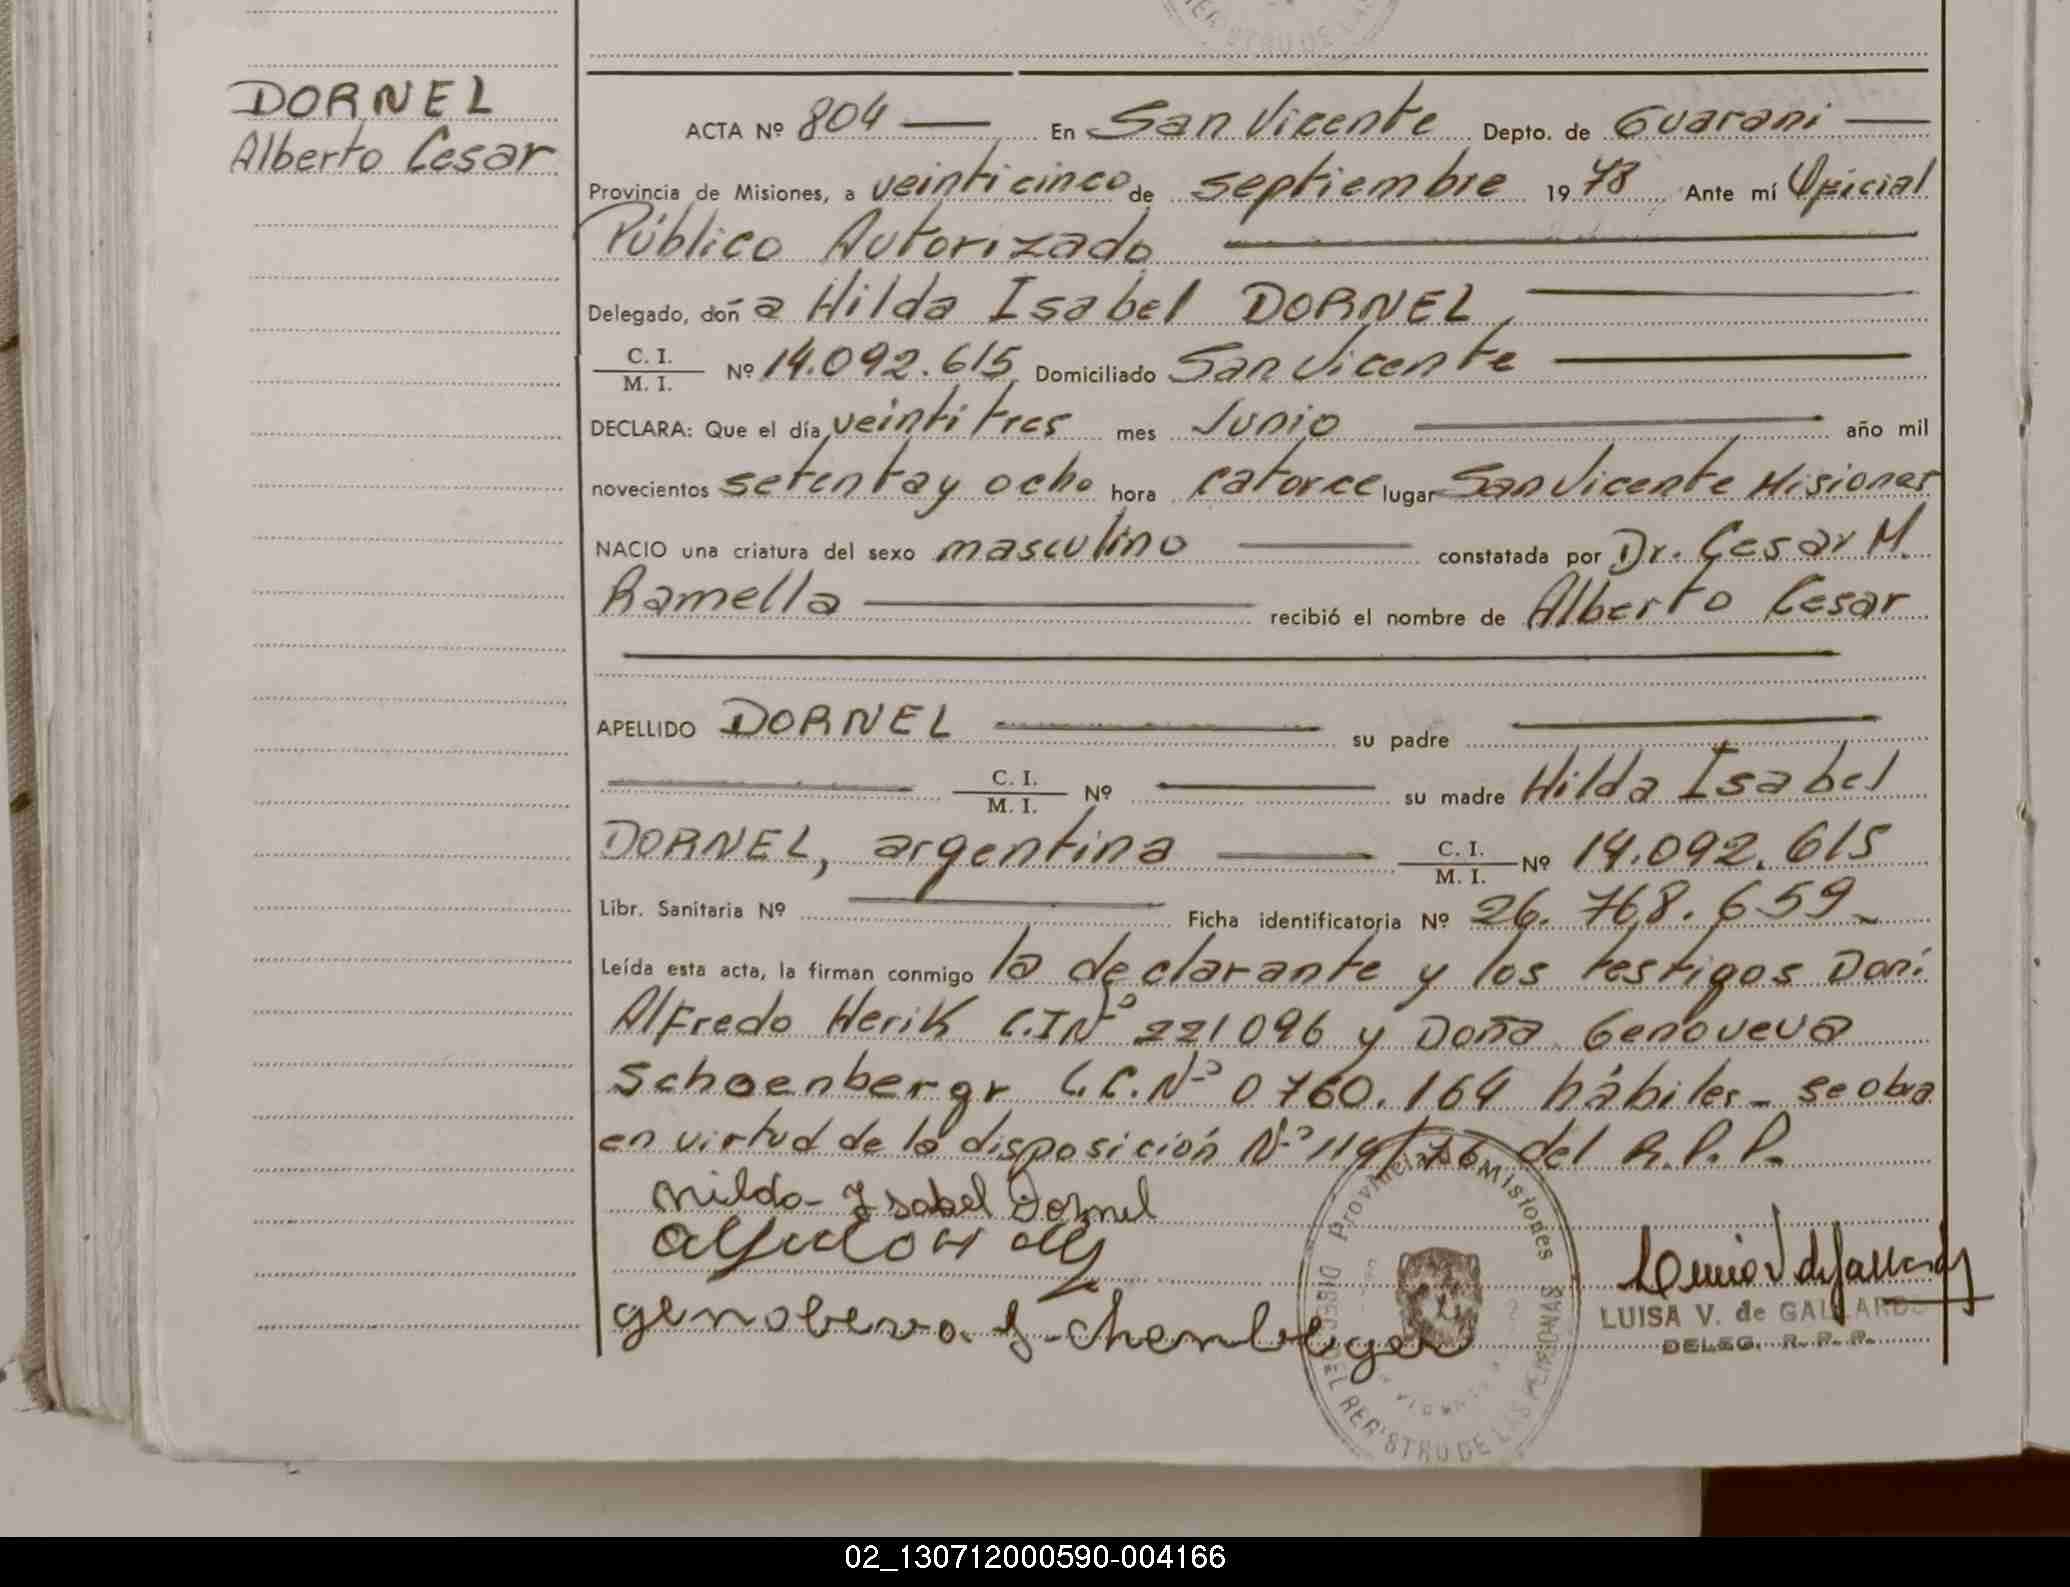 DORNEL
Alberto Cesar
ACTA Nº 804 — En San Vicente Depto. de Guarani —
Provincia de Misiones, a veinticinco de septiembre 1978 Ante mí Oficial
Público Autorizado
Delegado, doña Hilda Isabel DORNEL
C. I.
M. I. Nº 14.092.615 Domiciliado San Vicente
DECLARA: Que el día veintitres mes Junio año mil
novecientos setenta y ocho hora catorce lugar San Vicente Misiones
NACIO una criatura del sexo masculino constatada por Dr. Cesar M.
Ramella recibió el nombre de Alberto Cesar
APELLIDO DORNEL su padre
C. I.
M. I. Nº su madre Hilda Isabel
DORNEL, argentina C. I.
M. I. Nº 14.092.615
Libr. Sanitaria Nº Ficha identificatoria Nº 26.768.659_
Leída esta acta, la firman conmigo la declarante y los testigos Don:
Alfredo Herik C.I Nº 221096 y Doña Genoveva
Schoenbergr L.C. Nº 0760.164 hábiles_ se obra
en virtud de la disposición Nº 119/76 del R.P.P.
Hilda Isabel Dornel
LUISA V. de GALLARDO
DELEG. R. P. P.
Provincia de Misiones
REGISTRO DE LAS PERSONAS
02_130712000590-004166